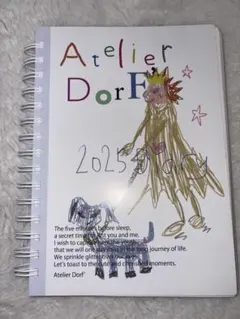 Atelier
DorF
2025 Diary
The five minutes before sleep,
a secret time for you and me.
I wish to
that we will one day
journey of life.
We sprinkle glitter
Let's toast to the
moments.
Atelier Dorf